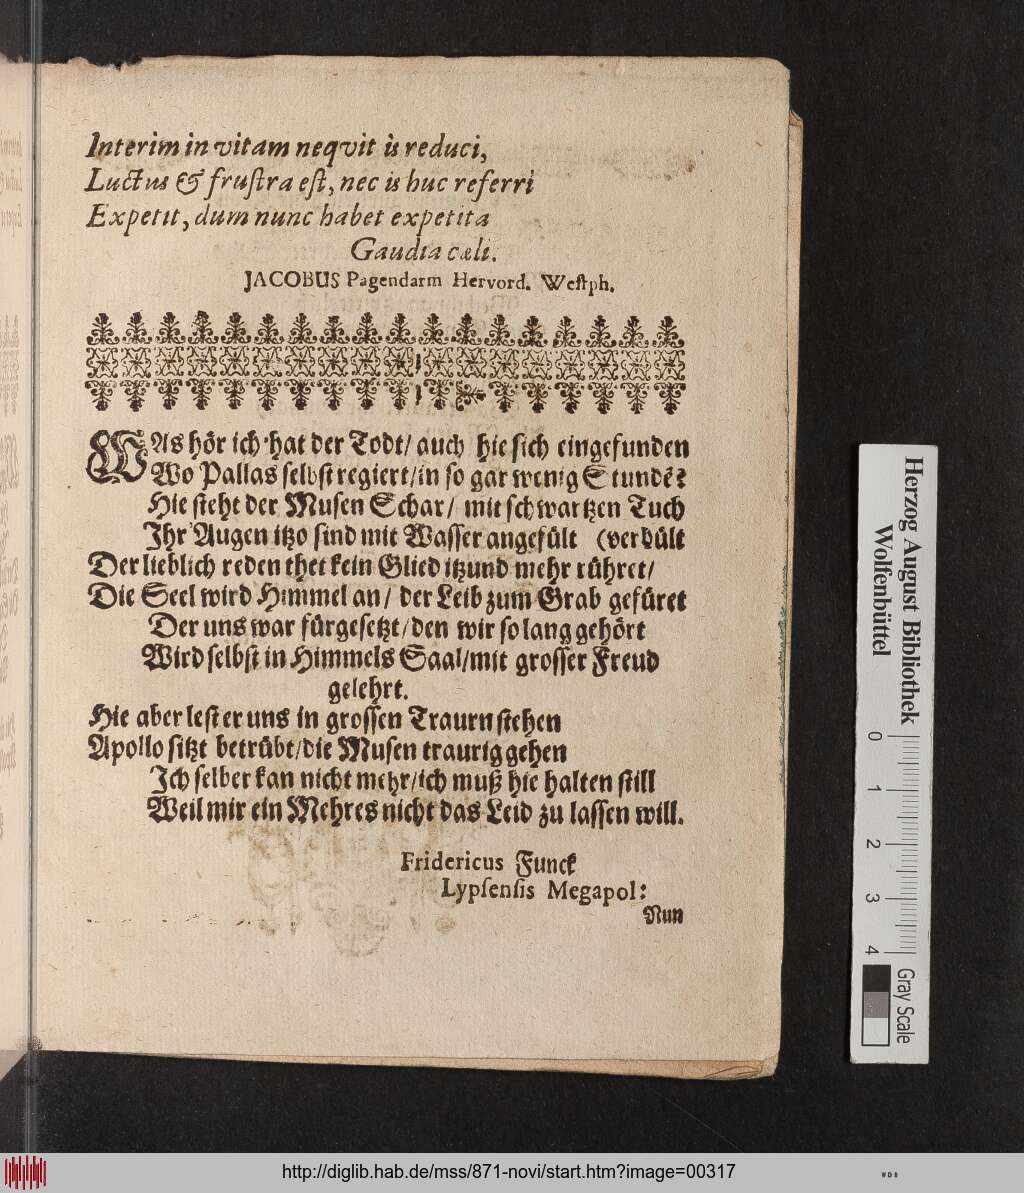 Interim in vitam neqvit is reduci,
Luctus & frustra est, nec is huc referri
Expetit, dum nunc habet expetita
Gaudia cæli.
JACOBUS Pagendarm Hervord. Westph.
WAs hör ich hat der Todt/ auch hie sich eingefunden
Wo Pallas selbst regiert/ in so gar wenig Stundē?
Hie steht der Musen Schar/ mit schwartzen Tuch
Ihr Augen itzo sind mit Wasser angefült (verhült
Der lieblich reden thet kein Glied itzund mehr rühret/
Die Seel wird Himmel an/ der Leib zum Grab gefüret
Der uns war fürgesetzt/ den wir so lang gehört
Wird selbst in Himmels Saal/ mit grosser Freud
gelehrt.
Hie aber lest er uns in grossen Traurn stehen
Apollo sitzt betrübt/ die Musen traurig gehen
Ich selber kan nicht mehr/ ich muß hie halten still
Weil mir ein Mehres nicht das Leid zu lassen will.
Fridericus Funck
Lypsensis Megapol:
Nun
Herzog August Bibliothek
Wolfenbüttel
0 1 2 3 4
Gray Scale
http://diglib.hab.de/mss/871-novi/start.htm?image=00317
WDB